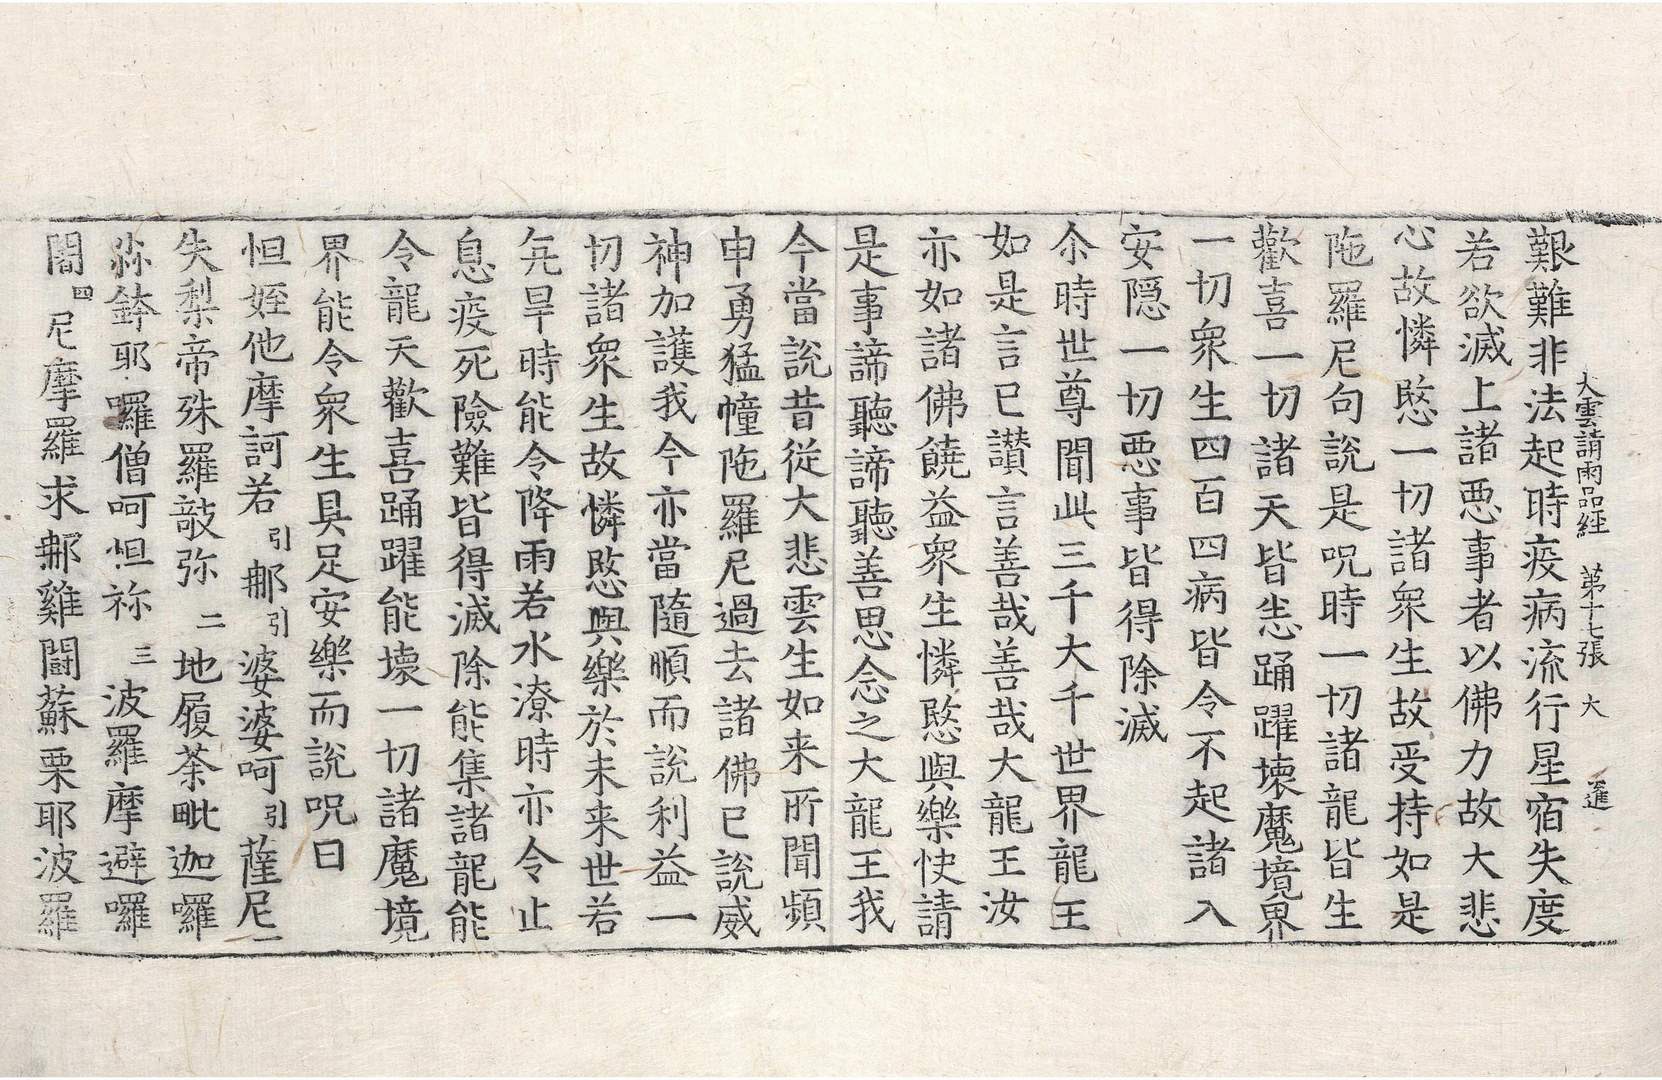 大雲請雨品經 苐十七張 大 進
艱難非法起時疫病流行星宿失度
若欲滅上諸惡事者以佛力故大悲
心故憐愍一切諸衆生故受持如是
陁羅尼句說是呪時一切諸龍皆生
歡喜一切諸天皆悉踊躍壞魔境界
一切衆生四百四病皆令不起諸入
安隠一切惡事皆得除滅
尒時世尊聞此三千大千世界龍王
如是言已讃言善哉善哉大龍王汝
亦如諸佛饒益衆生憐愍與樂快請
是事諦聽諦聽善思念之大龍王我
今當說昔從大悲雲生如来所聞頻
申勇猛幢陁羅尼過去諸佛已說威
神加護我今亦當隨順而說利益一
切諸衆生故憐愍與樂於未来世若
亢旱時能令降雨若水潦時亦令止
息疫死險難皆得滅除能集諸龍能
令龍天歡喜踊躍能壞一切諸魔境
界能令衆生具足安樂而說呪曰
怛姪他摩訶若引𨚗引婆婆呵引薩尼一
失梨帝殊羅敲弥二地履荼毗迦囉
祢鉢耶囉僧呵怛祢三波羅摩避囉
闍四尼摩羅求𨚗雞闘蘇栗耶波羅